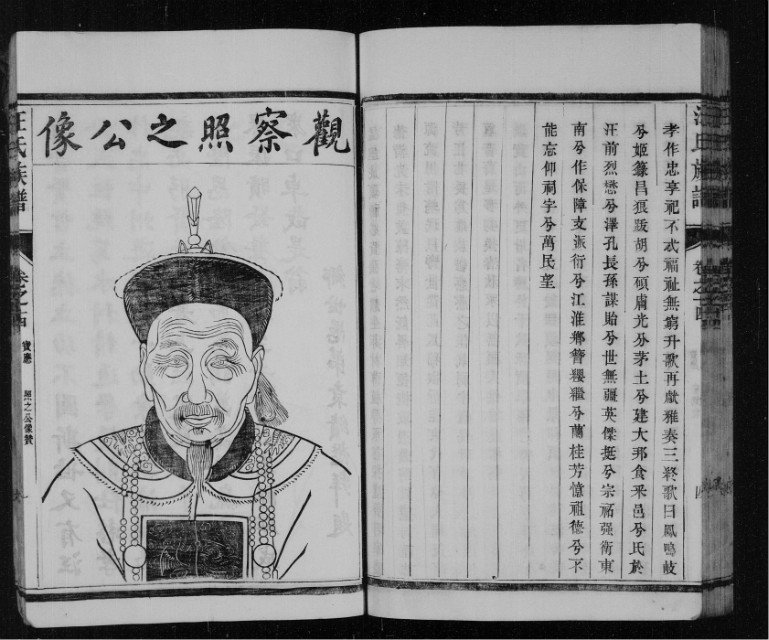 汪氏族譜
卷之十四
孝作忠享祀不忒福祉無窮升歌再獻雅奏三終歌曰鳳鳴岐
兮姬籙昌狼跋胡兮碩膚光分茅土兮建大邦食采邑兮氏於
汪前烈懋兮澤孔長孫謀貽兮世無疆英傑挺兮宗祏强衛東
南兮作保障支派衍兮江淮鄉簪纓繼兮蘭桂芳憶祖德兮不
能忘仰祠宇兮萬民望
觀察照之公像
汪氏族譜
卷之十四
寶應
照之公像贊
九